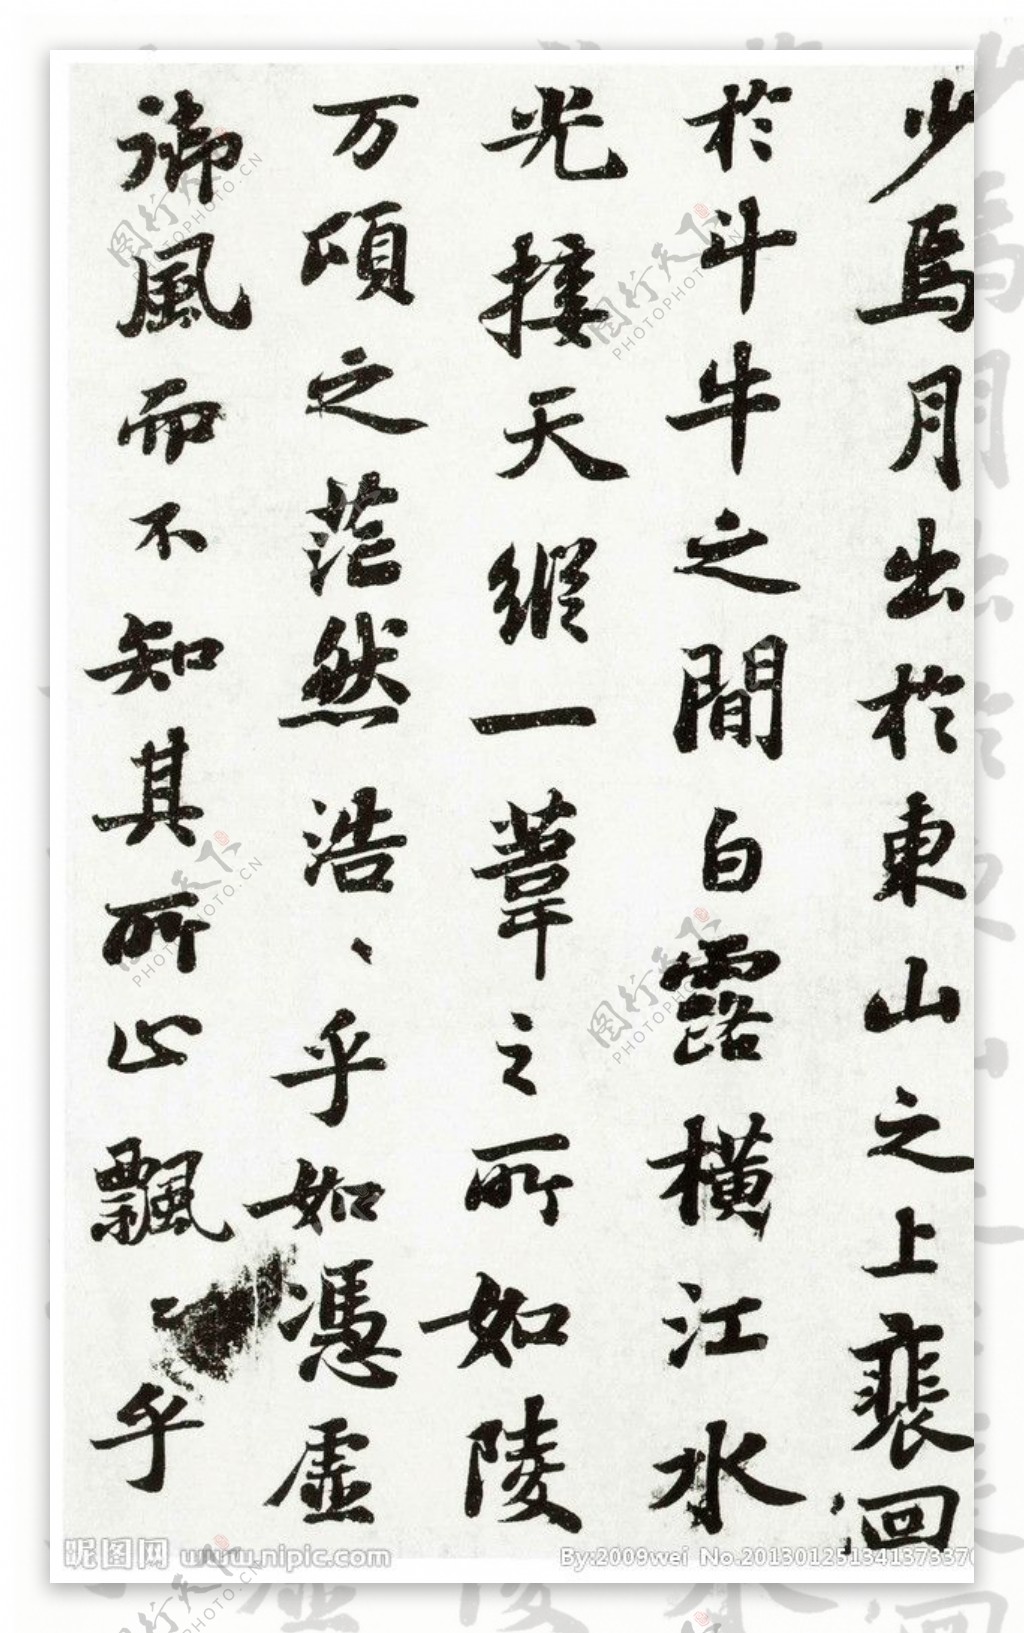 少焉月出於東山之上裴回
於斗牛之間白露橫江水
光接天縱一葦之所如陵
万頃之茫然浩〻乎如馮虛
御風而不知其所止飄〻乎
昵图网 www.nipic.com
By:2009wei No.2013012513413733370
图行天下 PHOTOPHOTO.CN